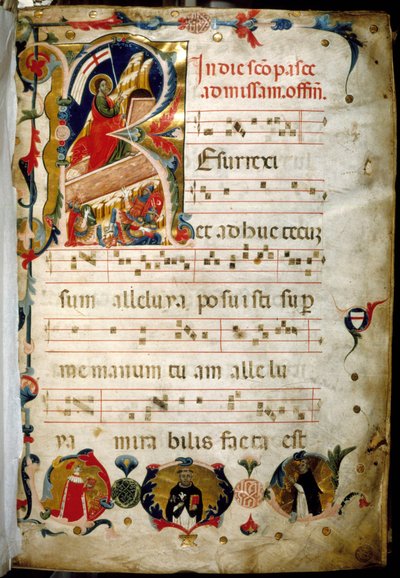 In die sco pasce
ad missam. offim.
REsurrexi
et ad huc tecuz
sum alleluya po su i sti sup
me manum tu am alle lu
ya mira bilis facta est